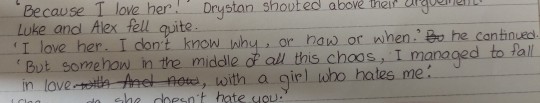 'Because I love her!' Drystan shouted above their argument.
Luke and Alex fell quite.
'I love her. I don't know why, or how or when.' he continued.
'But somehow in the middle of all this chaos, I managed to fall
in love with And now, with a girl who hates me.'
she doesn't hate you.'